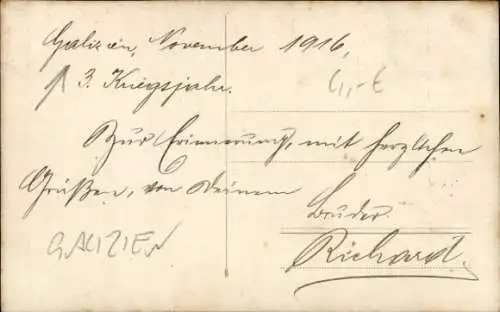 Galizien, November 1916,
3. Kriegsjahr.
Zur Erinnerung, mit herzlichen
Grüßen, von Deinem
Bruder
Richard.
GALIZIEN